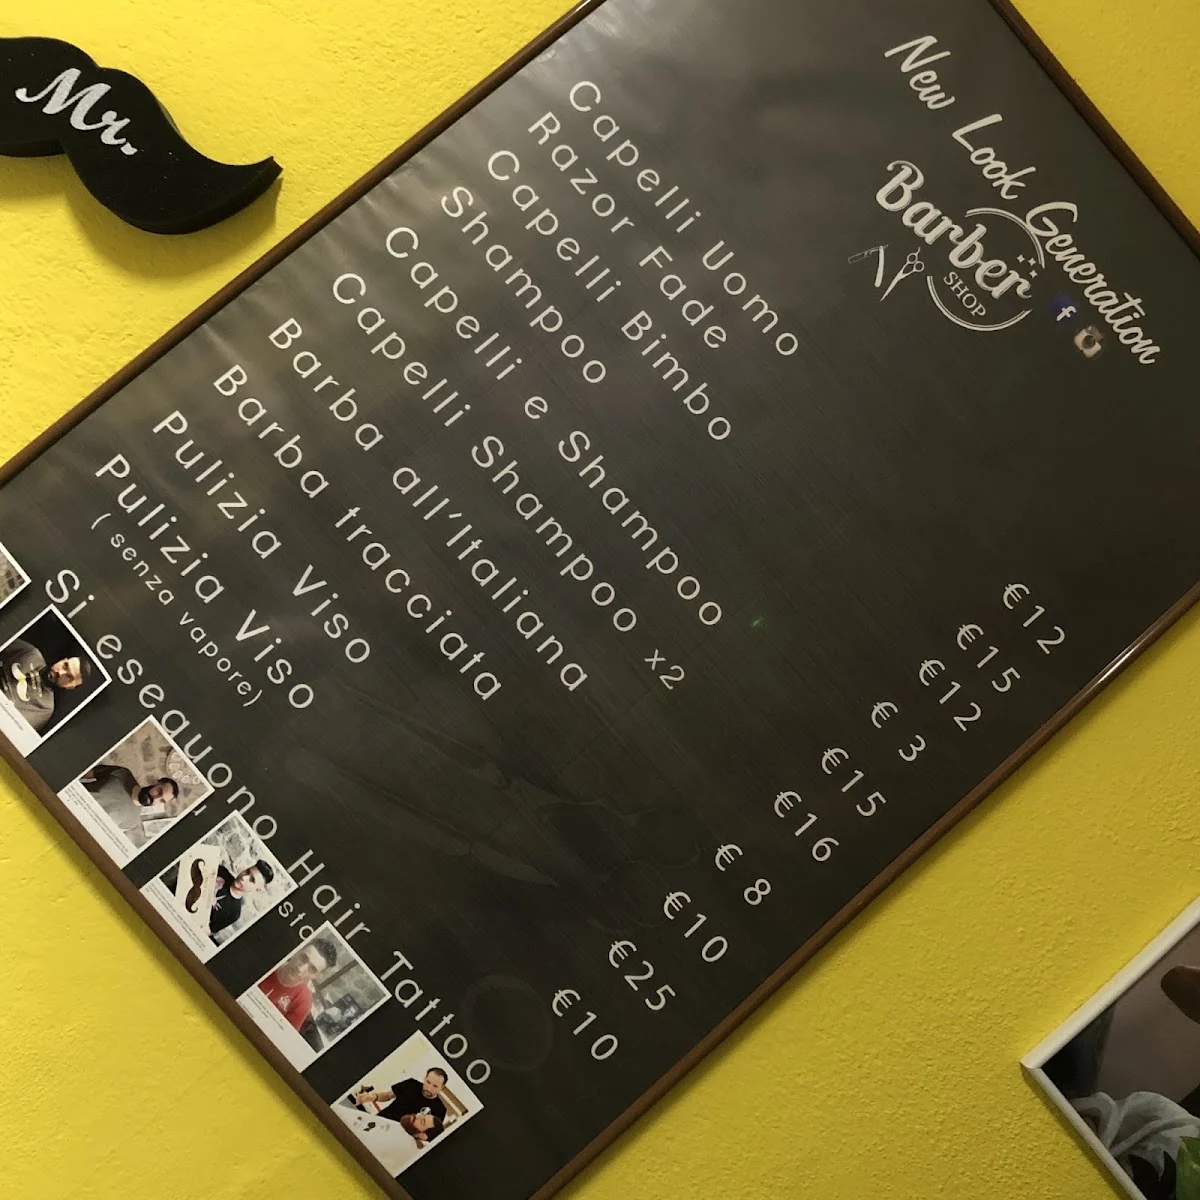 Mr.
New Look Generation
Barber
SHOP
f
Capelli Uomo €12
Razor Fade €15
Capelli Bimbo €12
Shampoo € 3
Capelli e Shampoo €15
Capelli Shampoo x2 €16
Barba all'Italiana € 8
Barba tracciata €10
Pulizia Viso €25
Pulizia Viso €10
( senza vapore)
Si eseguono Hair Tattoo